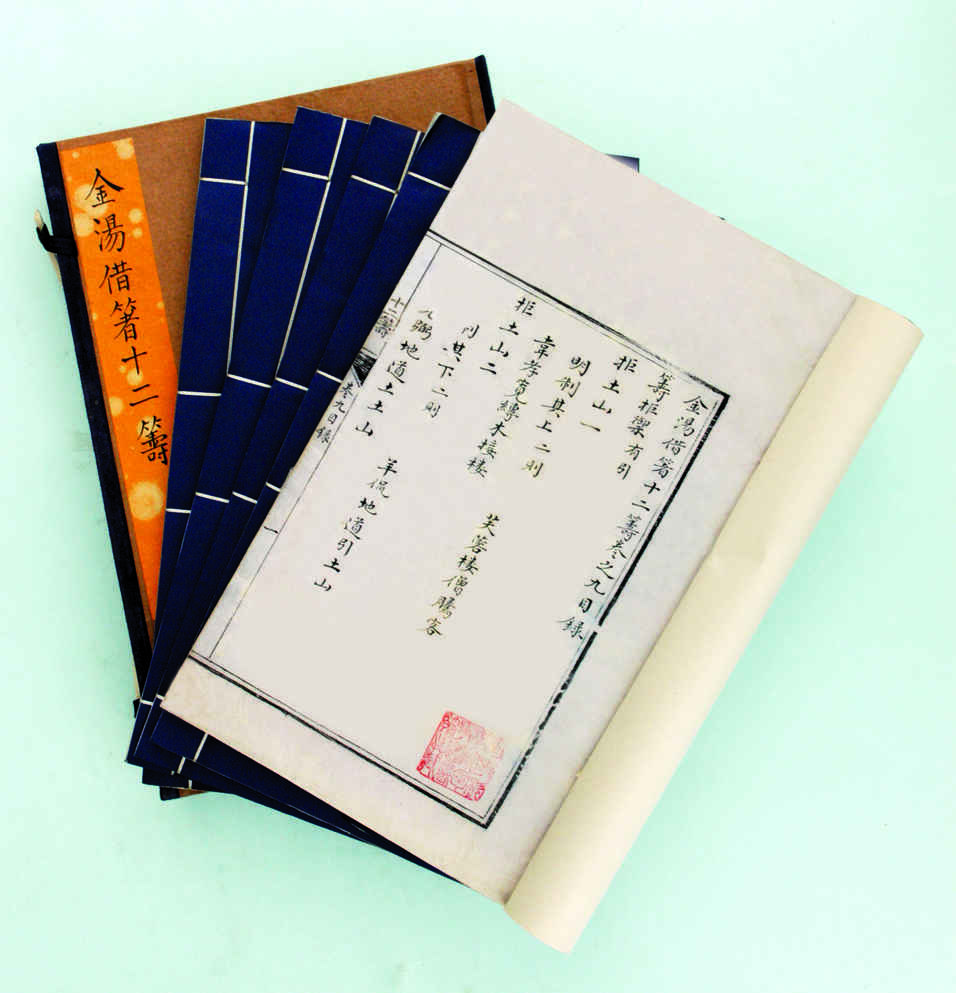 金湯借箸十二籌
金湯借箸十二籌卷之九目錄
籌拒禦有引
拒土山一
明制其上二則
韋孝寬縛木接樓 芙蓉樓僧騰客
拒土山二
制其下二則
地道土土山 羊侃地道引土山
十二籌
卷九目錄
一